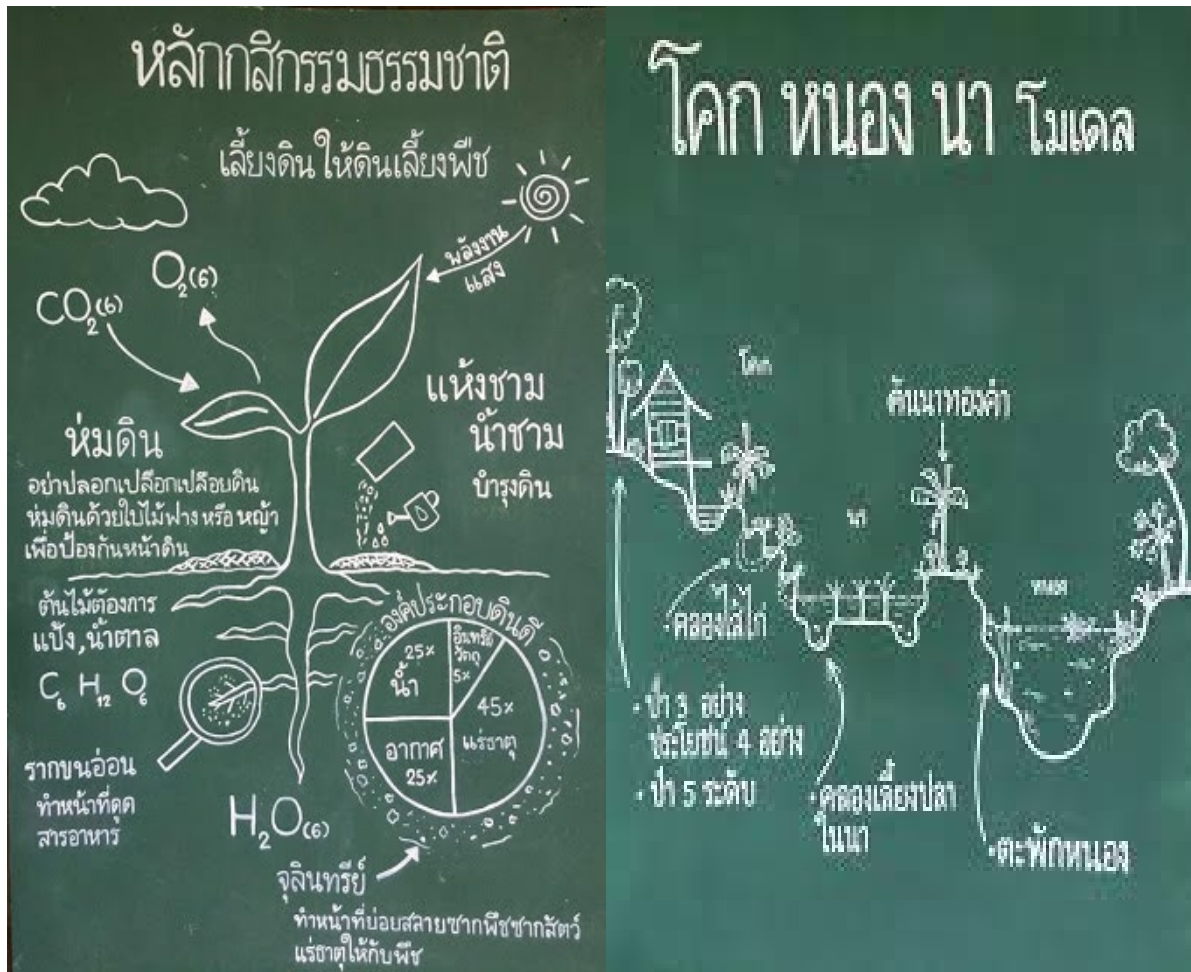 หลักกสิกรรมธรรมชาติ
เลี้ยงดิน ให้ดินเลี้ยงพืช
พลังงาน
แสง
O₂(6)
CO₂(6)
แห้งชาม
น้ำชาม
บำรุงดิน
ห่มดิน
อย่าปลอกเปลือกเปลือยดิน
ห่มดินด้วยใบไม้ฟาง หรือ หญ้า
เพื่อป้องกันหน้าดิน
ต้นไม้ต้องการ
แป้ง, น้ำตาล
C₆ H₁₂ O₆
รากขนอ่อน
ทำหน้าที่ดูด
สารอาหาร
H₂O(6)
องค์ประกอบดินดี
25%
น้ำ
อินทรีย์
วัตถุ
5%
45%
แร่ธาตุ
อากาศ
25%
จุลินทรีย์
ทำหน้าที่ย่อยสลายซากพืชซากสัตว์
แร่ธาตุให้กับพืช
โคก หนอง นา โมเดล
โคก
คันนาทองคำ
นา
หนอง
• คลองไส้ไก่
• ป่า 3 อย่าง
ประโยชน์ 4 อย่าง
• ป่า 5 ระดับ
• คลองเลี้ยงปลา
ในนา
• ตะพักหนอง